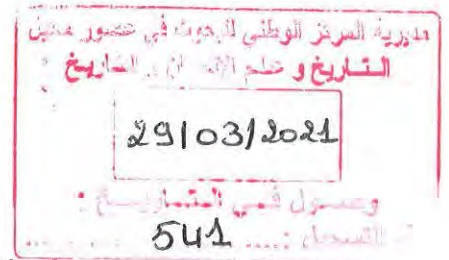 مديرية المركز الوطني للبحوث في عصور ما قبل
التاريخ و علم الإنسان و التاريخ
29/03/2021
وصول في التاريخ :
التسجيل : .... 541